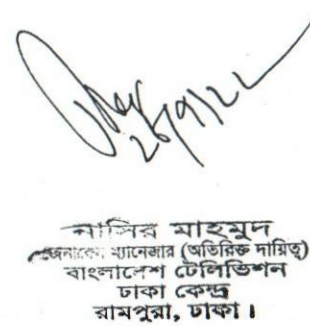 ২৬/৭/২২
নাসির মাহমুদ
জেনারেল ম্যানেজার (অতিরিক্ত দায়িত্ব)
বাংলাদেশ টেলিভিশন
ঢাকা কেন্দ্র
রামপুরা, ঢাকা।